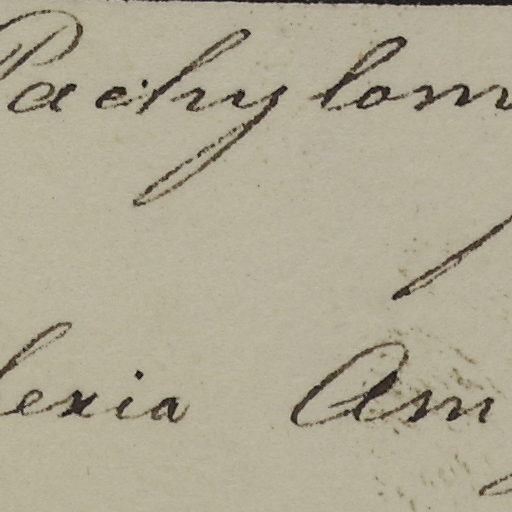 Pachylom
lexia Am